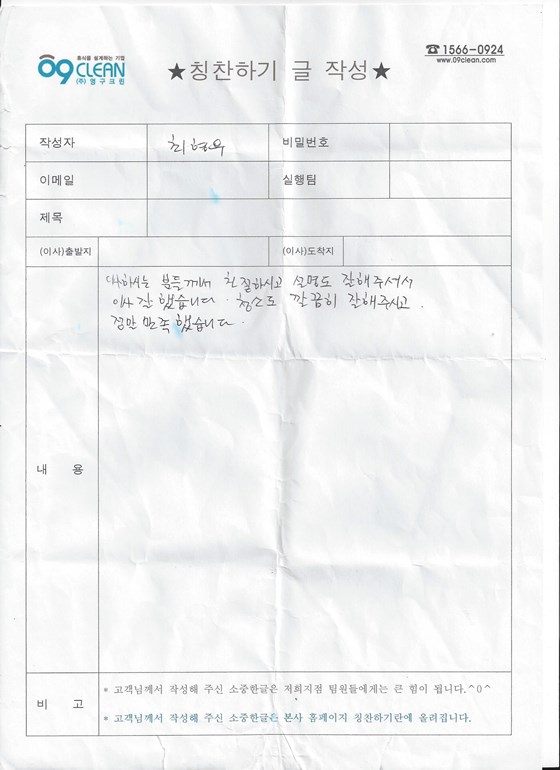 휴식을 설계하는 기업
09CLEAN
(주)영구크린
★칭찬하기 글 작성★
☎1566-0924
www.09clean.com
작성자 최현욱 비밀번호
이메일 실행팀
제목
(이사)출발지 (이사)도착지
이사하시는 분들께서 친절하시고 설명도 잘해주셔서
이사 잘 했습니다. 청소도 깔끔히 잘해주시고.
정말 만족했습니다.
내 용
비 고
* 고객님께서 작성해 주신 소중한글은 저희지점 팀원들에게는 큰 힘이 됩니다.^0^
* 고객님께서 작성해 주신 소중한글은 본사 홈페이지 칭찬하기란에 올려집니다.